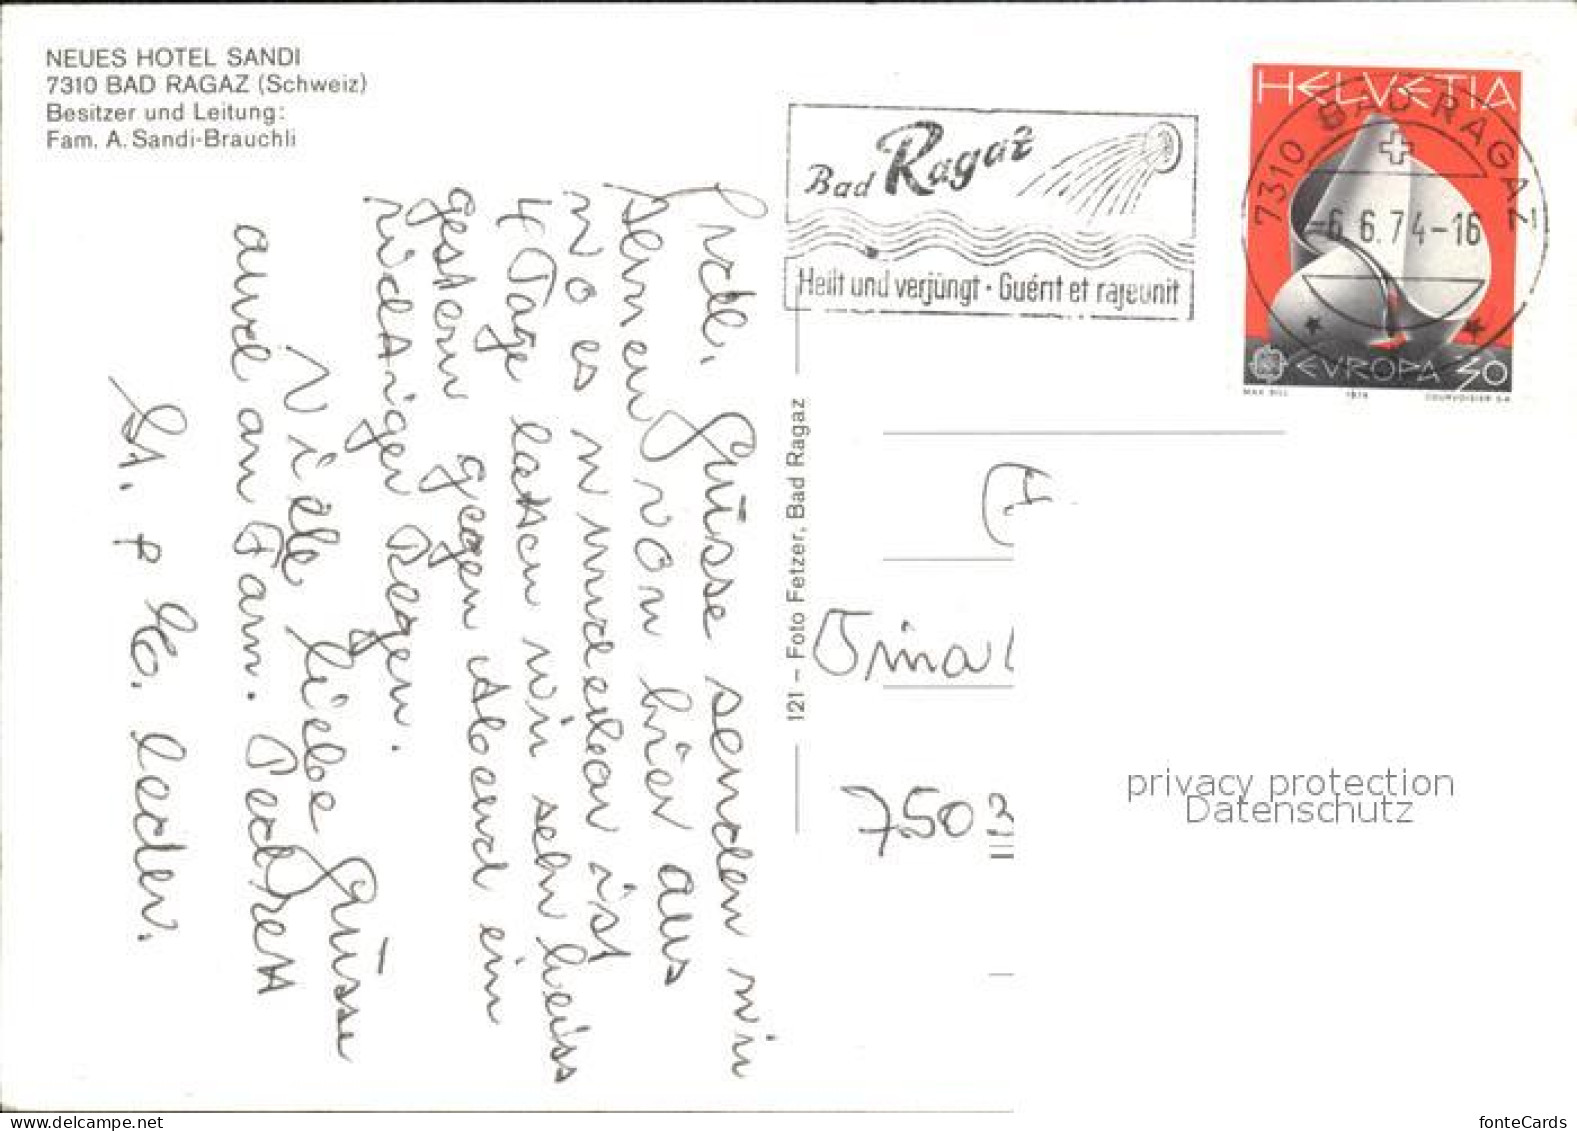 NEUES HOTEL SANDI
7310 BAD RAGAZ (Schweiz)
Besitzer und Leitung:
Fam. A. Sandi-Brauchli
Bad Ragaz
Heilt und verjüngt · Guérit et rajeunit
HELVETIA
7310 BAD RAGAZ 1
-6.6.74-16
EVROPA 30
MAX BILL 1974 COURVOISIER S.A.
Grüsse senden wir
von hier aus
wo es wunderbar ist
4 Tage hatten wir sehr heiss
gestern gegen Abend ein
richtiger Regen.
Viele liebe Grüsse
auch an Fam.
121 – Foto Fetzer, Bad Ragaz
7503
privacy protection
Datenschutz
fonteCards